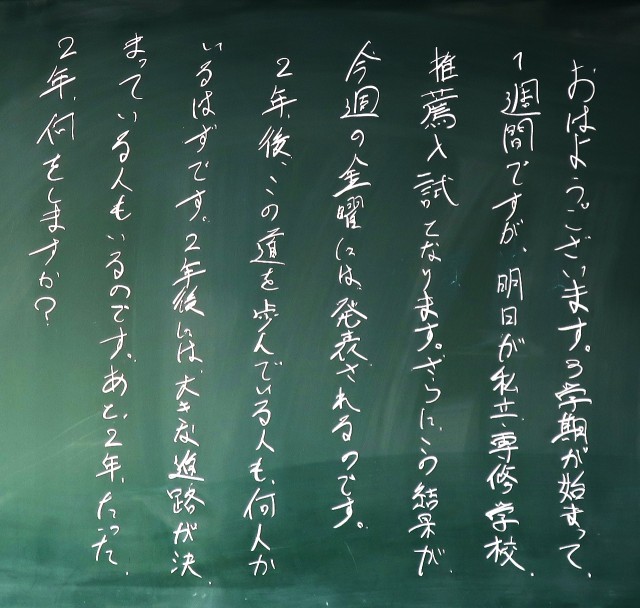 おはようございます。3学期が始まって、
1週間ですが、明日が私立、専修学校、
推薦入試となります。さらに、この結果が、
今週の金曜には、発表されるのです。
2年後、この道を歩んでいる人も、何人か
いるはずです。2年後には、大きな進路が決
まっている人もいるのです。あと、2年、たった、
2年、何をしますか?